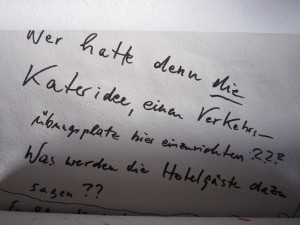 Wer hatte denn die
Kateridee, einen Verkehrs–
übungsplatz hier einzurichten ???
Was werden die Hotelgäste dazu
sagen ??